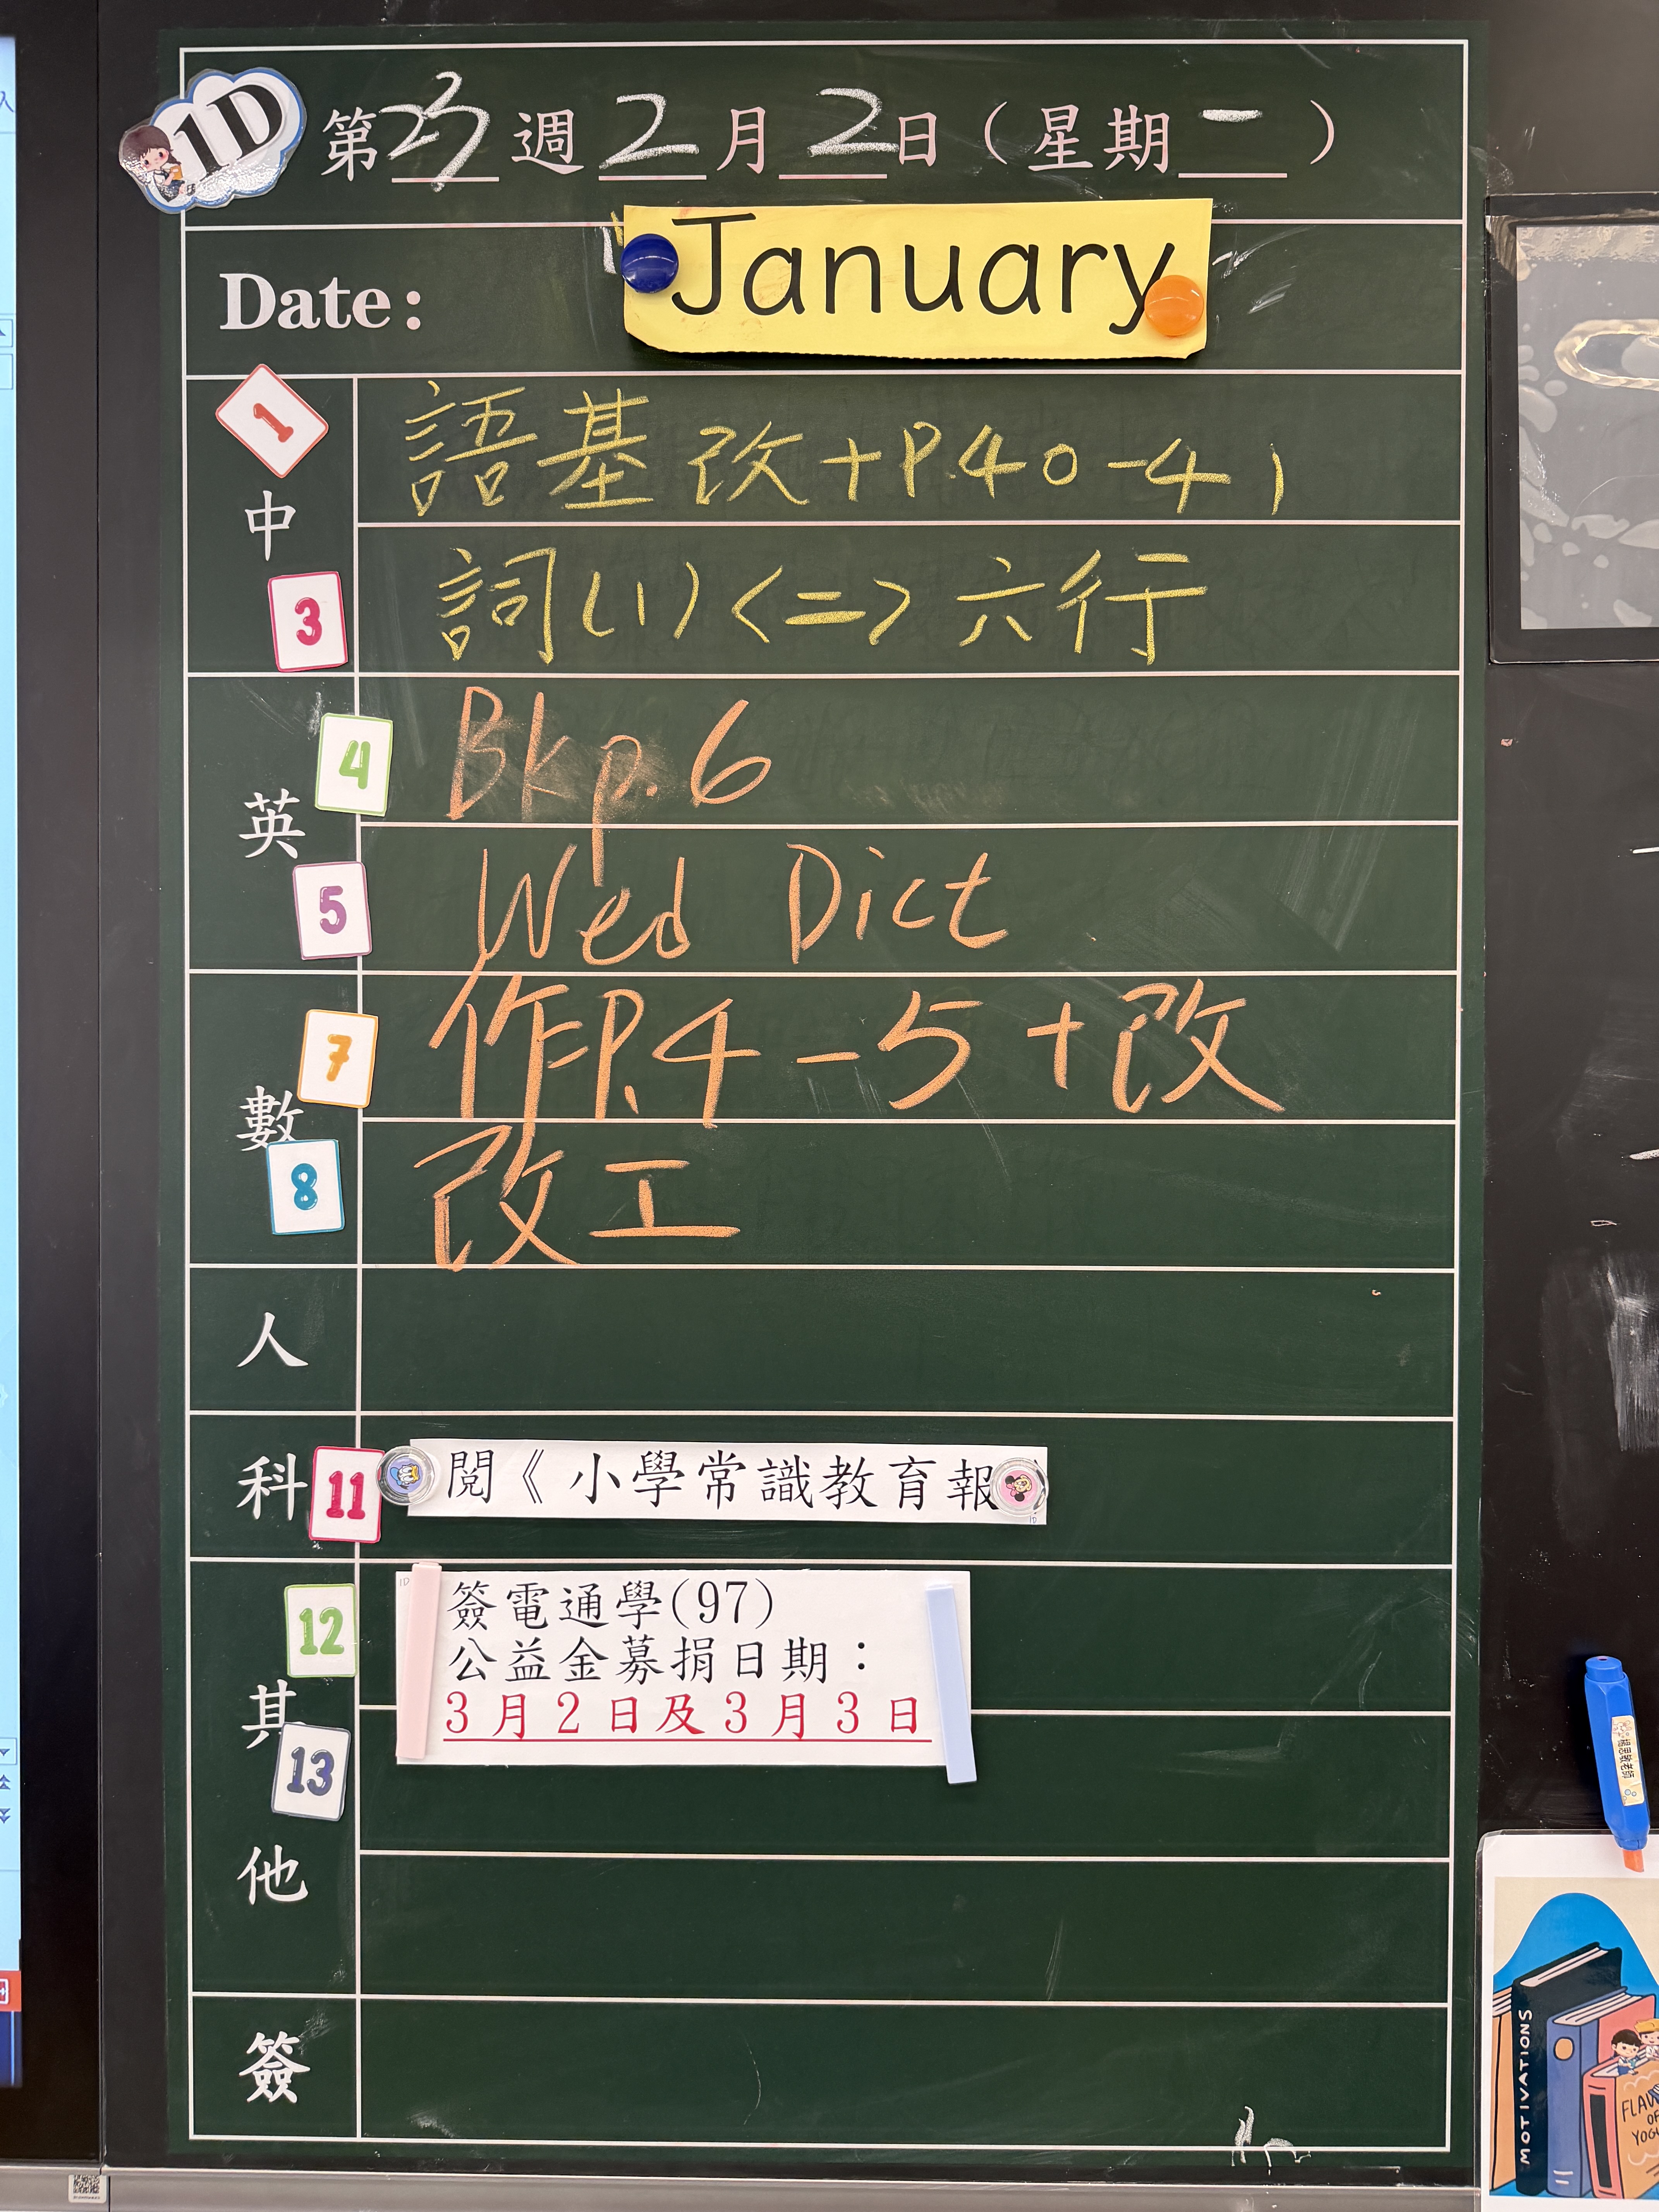 1D
第23週2月2日（星期一）
Date: January
1
語基改+P.40-41
中
3 詞(1)<=>六行
4 Bk p.6
英
5 Wed Dict
7 作P.4-5+改
數
8 改工
人
科 11 閱《小學常識教育報
12 簽電通學(97)
公益金募捐日期：
3月2日及3月3日
其
13
他
簽
MOTIVATIONS